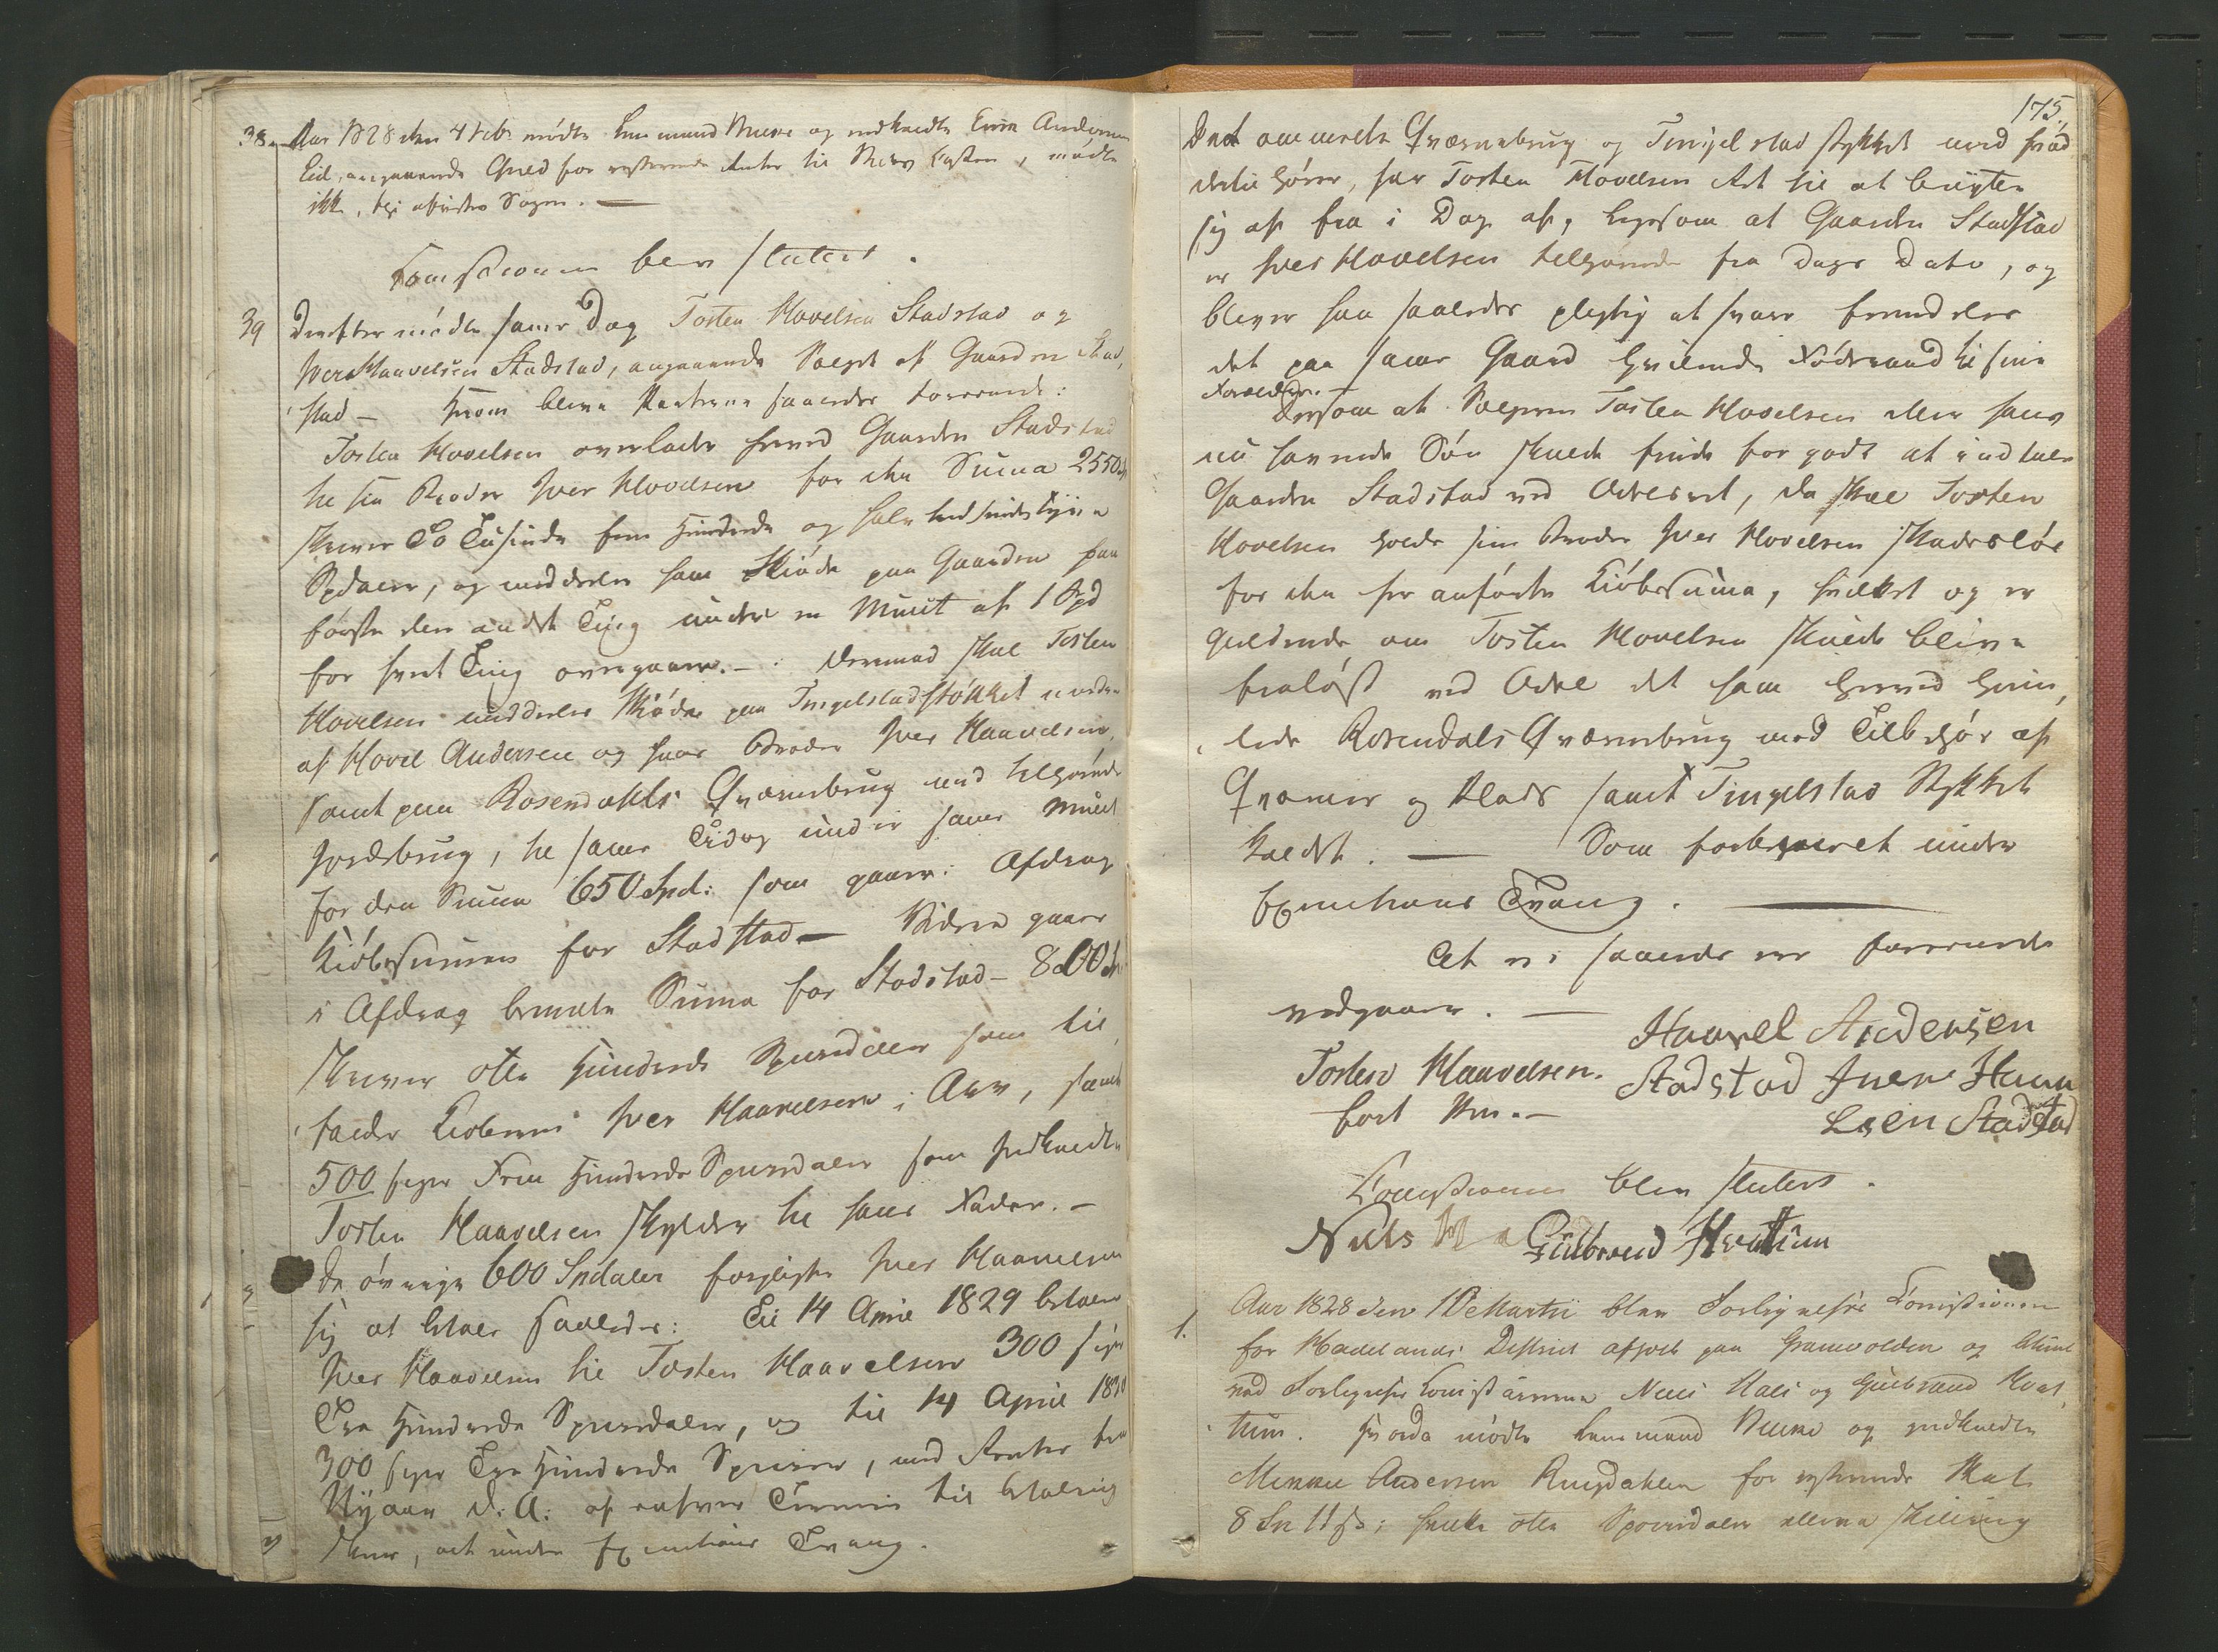 38. Aar 1828 den 4 Feb. mødte Lensmand og indkaldte Anders
Eid, angaaende Gield for resterende til , mødte
ikke, thi afvistes Sagen. —
Comissionen blev sluttet.
39 Derefter mødte samme Dag Tosten Hovelsen Stadstad og
Iver Haavelsen Stadstad, angaaende Salget af Gaarden Stad,
stad — Hvorom bleve Parterne saaledes forenede:
Tosten Hovelsen overlader herved Gaarden Stadstad
til sin Broder Iver Hovelsen for den Suma 2550
skriver To Tusinde fem Hundrede og halvtredsindstyve
Spdaler, og meddeler ham Skiøde paa Gaarden paa
første eller andet Ting under en Mulct af 1 Spd
for hvert Ting overgaaer. — Derimod skal Tosten
Hovelsen meddeles Skiøde paa Tingelstadstøkket
af Hovel Andersen og hans Broder Iver Haavelsen,
samt paa Rosendahls Qværnebrug med tilhørende
Jordebrug, til samme Tid og under samme Mulct
for den Suma 650 Spd: som gaaer i Afdrag
Kiøbesummen for Stadstad — Videre gaaer
i Afdrag bemelte Suma for Stadstad — 800
skriver otte Hundrede Speciedaler som til,
falder Kiøberen Iver Haavelsen i Arv, samt
500 siger Fem Hundrede Speciedaler som Indkaldte
Tosten Haavelsen skylder til hans Fader. —
De øvrige 600 Spdaler forpligter Iver Haavelsen
sig at betale saaledes: Til 14 April 1829 betaler
Iver Haavelsen til Tosten Haavelsen 300 siger
Tre Hundrede Speciedaler, og til 14 April 1830
300 siger Tre Hundrede Species, med Renter fra
Nyaar d: A: af enhver Termin til Betaling
skeer, alt under Executions Tvang.
175.
Det ommelte Qværnebrug og Tingelstad stykket med hvad
dertil hører, har Tosten Hovelsen Ret til at benytte
sig af fra i Dag af, ligesom at Gaarden Stadstad
er Iver Hovelsen tilhørende fra Dags Dato, og
bliver han saaledes pligtig at svare fremdeles
det paa samme Gaard hvilende Føderaad til sine
Forældre. —
Dersom at Sælgeren Tosten Hovelsen eller hans
nu havende Søn skulde finde for godt at indtale
Gaarden Stadstad ved Odelsret, da skal Tosten
Hovelsen holde sin Broder Iver Hovelsen skadesløs
for den her anførte Kiøbesuma, hvilket og er
gieldende om Tosten Hovelsen skulde blive
fraløst ved Odel det ham herved
lede Rosendals Qværnebrug med Tilbehør af
Qværner og Plads samt Tingelstad Stykket
kaldet. — Som forbemeldt under
Executions Tvang. —
At vi saaledes ere forenede
vedgaaer. —
Haavel Andersen
Tosten Haavelsen. Stadstad Iver Haav
Lsen Stadstad
Comissionen blev sluttet.
Niels Gulbrand Hvattum
1. Aar 1828 den 10de Martii blev Forligelses Comissionen
for Hadelands District afholt paa Granavolden og betient
ved Forligelses Comissairerne Niels Hals og Gulbrand Hvat,
tum. Hvorda mødte Lensmand og indkaldte
Andersen for resterende Skat
8 Sp 11 s; skriver otte Speciedaler elleve Skilling